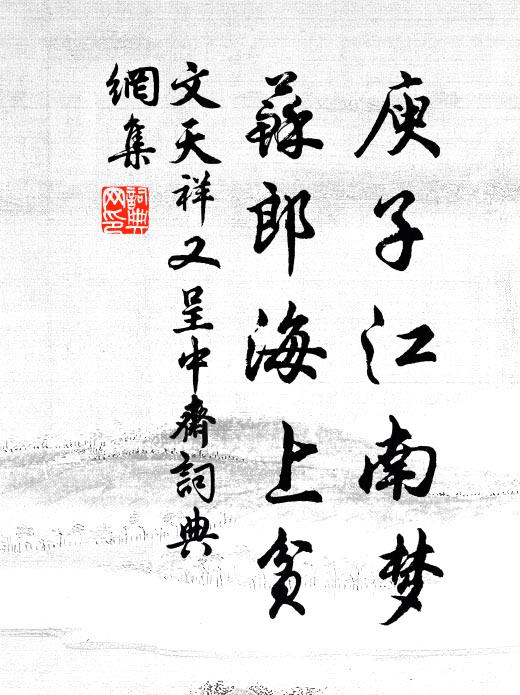 庾子江南梦
蘇郎海上貧
文天祥又呈中齋詞典
網集
詞典
网印